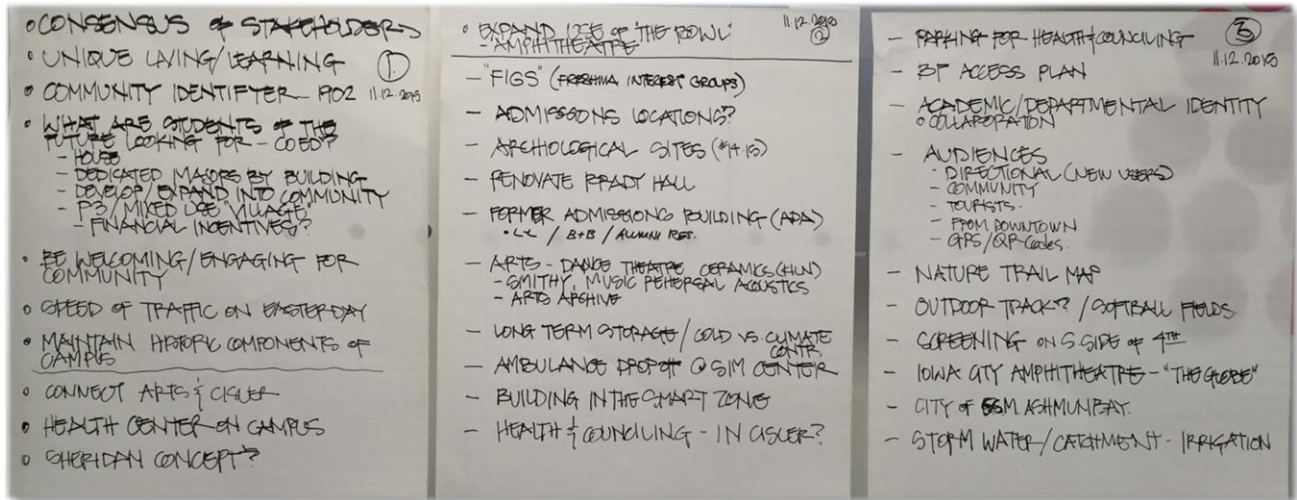 • CONSENSUS of STAKEHOLDERS
• UNIQUE LIVING/LEARNING
1.
• COMMUNITY IDENTIFYER - 1902
11.12.2015
• WHAT ARE STUDENTS OF THE
FUTURE LOOKING FOR - CO ED?
- HOUSE
- DEDICATED MAJORS BY BUILDING
- DEVELOP/EXPAND INTO COMMUNITY
- P3/MIXED USE "VILLAGE"
- FINANCIAL INCENTIVES?
• BE WELCOMING/ENGAGING FOR
COMMUNITY
• SPEED OF TRAFFIC ON EASTERDAY
• MAINTAIN HISTORIC COMPONENTS OF
CAMPUS
• CONNECT ARTS & CISLER
• HEALTH CENTER ON CAMPUS
• SHERIDAN CONCEPT?
• EXPAND USE OF "THE BOWL"
- AMPHITHEATRE
11.12.2015
2
- "FIGS" (FRESHMA INTEREST GROUPS)
- ADMISSIONS LOCATIONS?
- ARCHIOLOGICAL SITES (#14.15)
- RENOVATE BRADY HALL
- FORMER ADMISSIONS BUILDING (ADA)
• LL / B+B / ALUMNI RES.
- ARTS - DANCE THEATRE CERAMICS (KILN)
- SMITHY, MUSIC REHERSAL ACOUSTICS
- ARTS ARCHIVE
- LONG TERM STORAGE/COLD VS CLIMATE
CONTR.
- AMBULANCE DROPOFF @ SIM CENTER
- BUILDING IN THE SMART ZONE
- HEALTH & COUNCILING - IN CISLER?
- PARKING FOR HEALTH & COUNCILING
3
11.12.2015
- BF ACCESS PLAN
- ACADEMIC/DEPARTMENTAL IDENTITY
• COLLABORATION
- AUDIENCES
- DIRECTIONAL (NEW USERS)
- COMMUNITY
- TOURISTS
- FROM DOWNTOWN
- GPS/QR Codes
- NATURE TRAIL MAP
- OUTDOOR TRACK? / SOFTBALL FIELDS
- SCREENING ON S SIDE OF 4TH
- IOWA CITY AMPHITHEATRE - "THE GLOBE"
- CITY of SSM ASHMUN BAY.
- STORM WATER/CATCHMENT - IRRIGATION